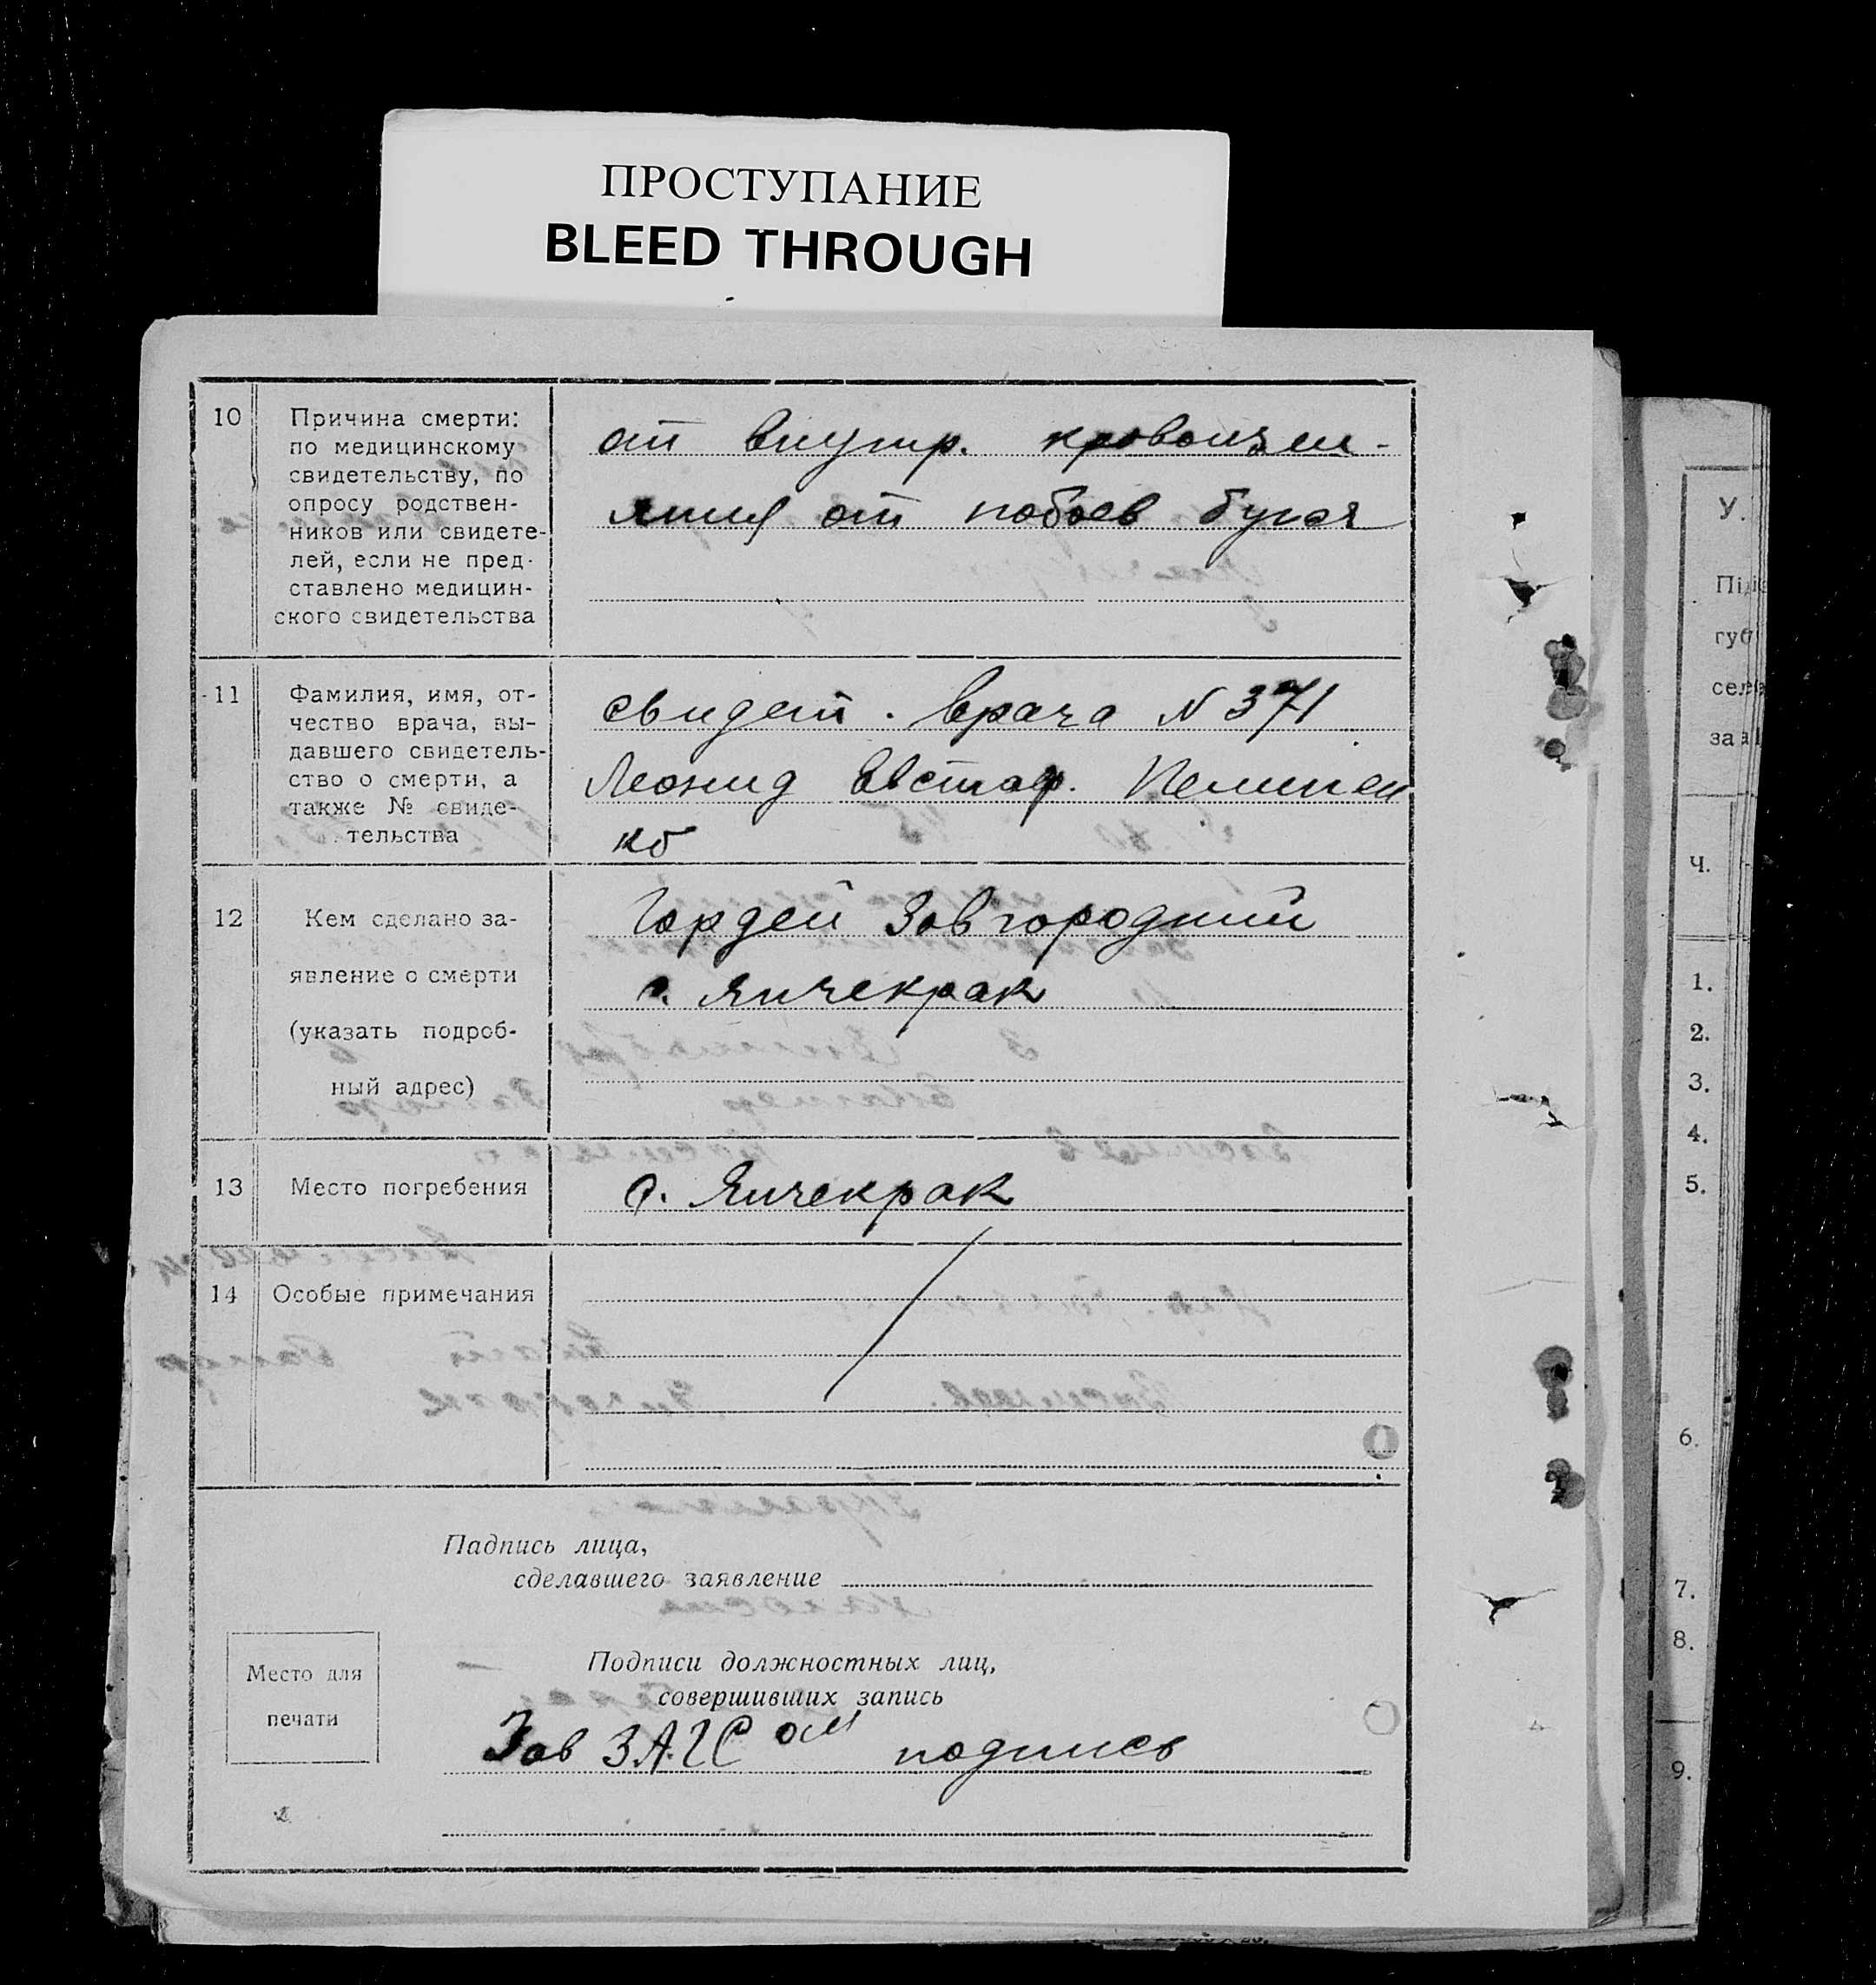 ПРОСТУПАНИЕ
BLEED THROUGH
10
Причина смерти:
по медицинскому
свидетельству, по
опросу родствен-
ников или свидете-
лей, если не пред-
ставлено медицин-
ского свидетельства
от внутр. кровоизли-
яния от побоев бугая
11
Фамилия, имя, от-
чество врача, вы-
давшего свидетель-
ство о смерти, а
также № свиде-
тельства
свидет. врача N 371
Леонид Евстаф.
12
Кем сделано за-
явление о смерти
(указать подроб-
ный адрес)
Гордей Завгородний
с. Янчекрак
13
Место погребения
с. Янчекрак
14
Особые примечания
Падпись лица,
сделавшего заявление
Место для
печати
Подписи должностных лиц,
совершивших запись
Зав ЗАГСом подпись
У.
Підп
губ
селе
за
Ч.
1.
2.
3.
4.
5.
6.
7.
8.
9.